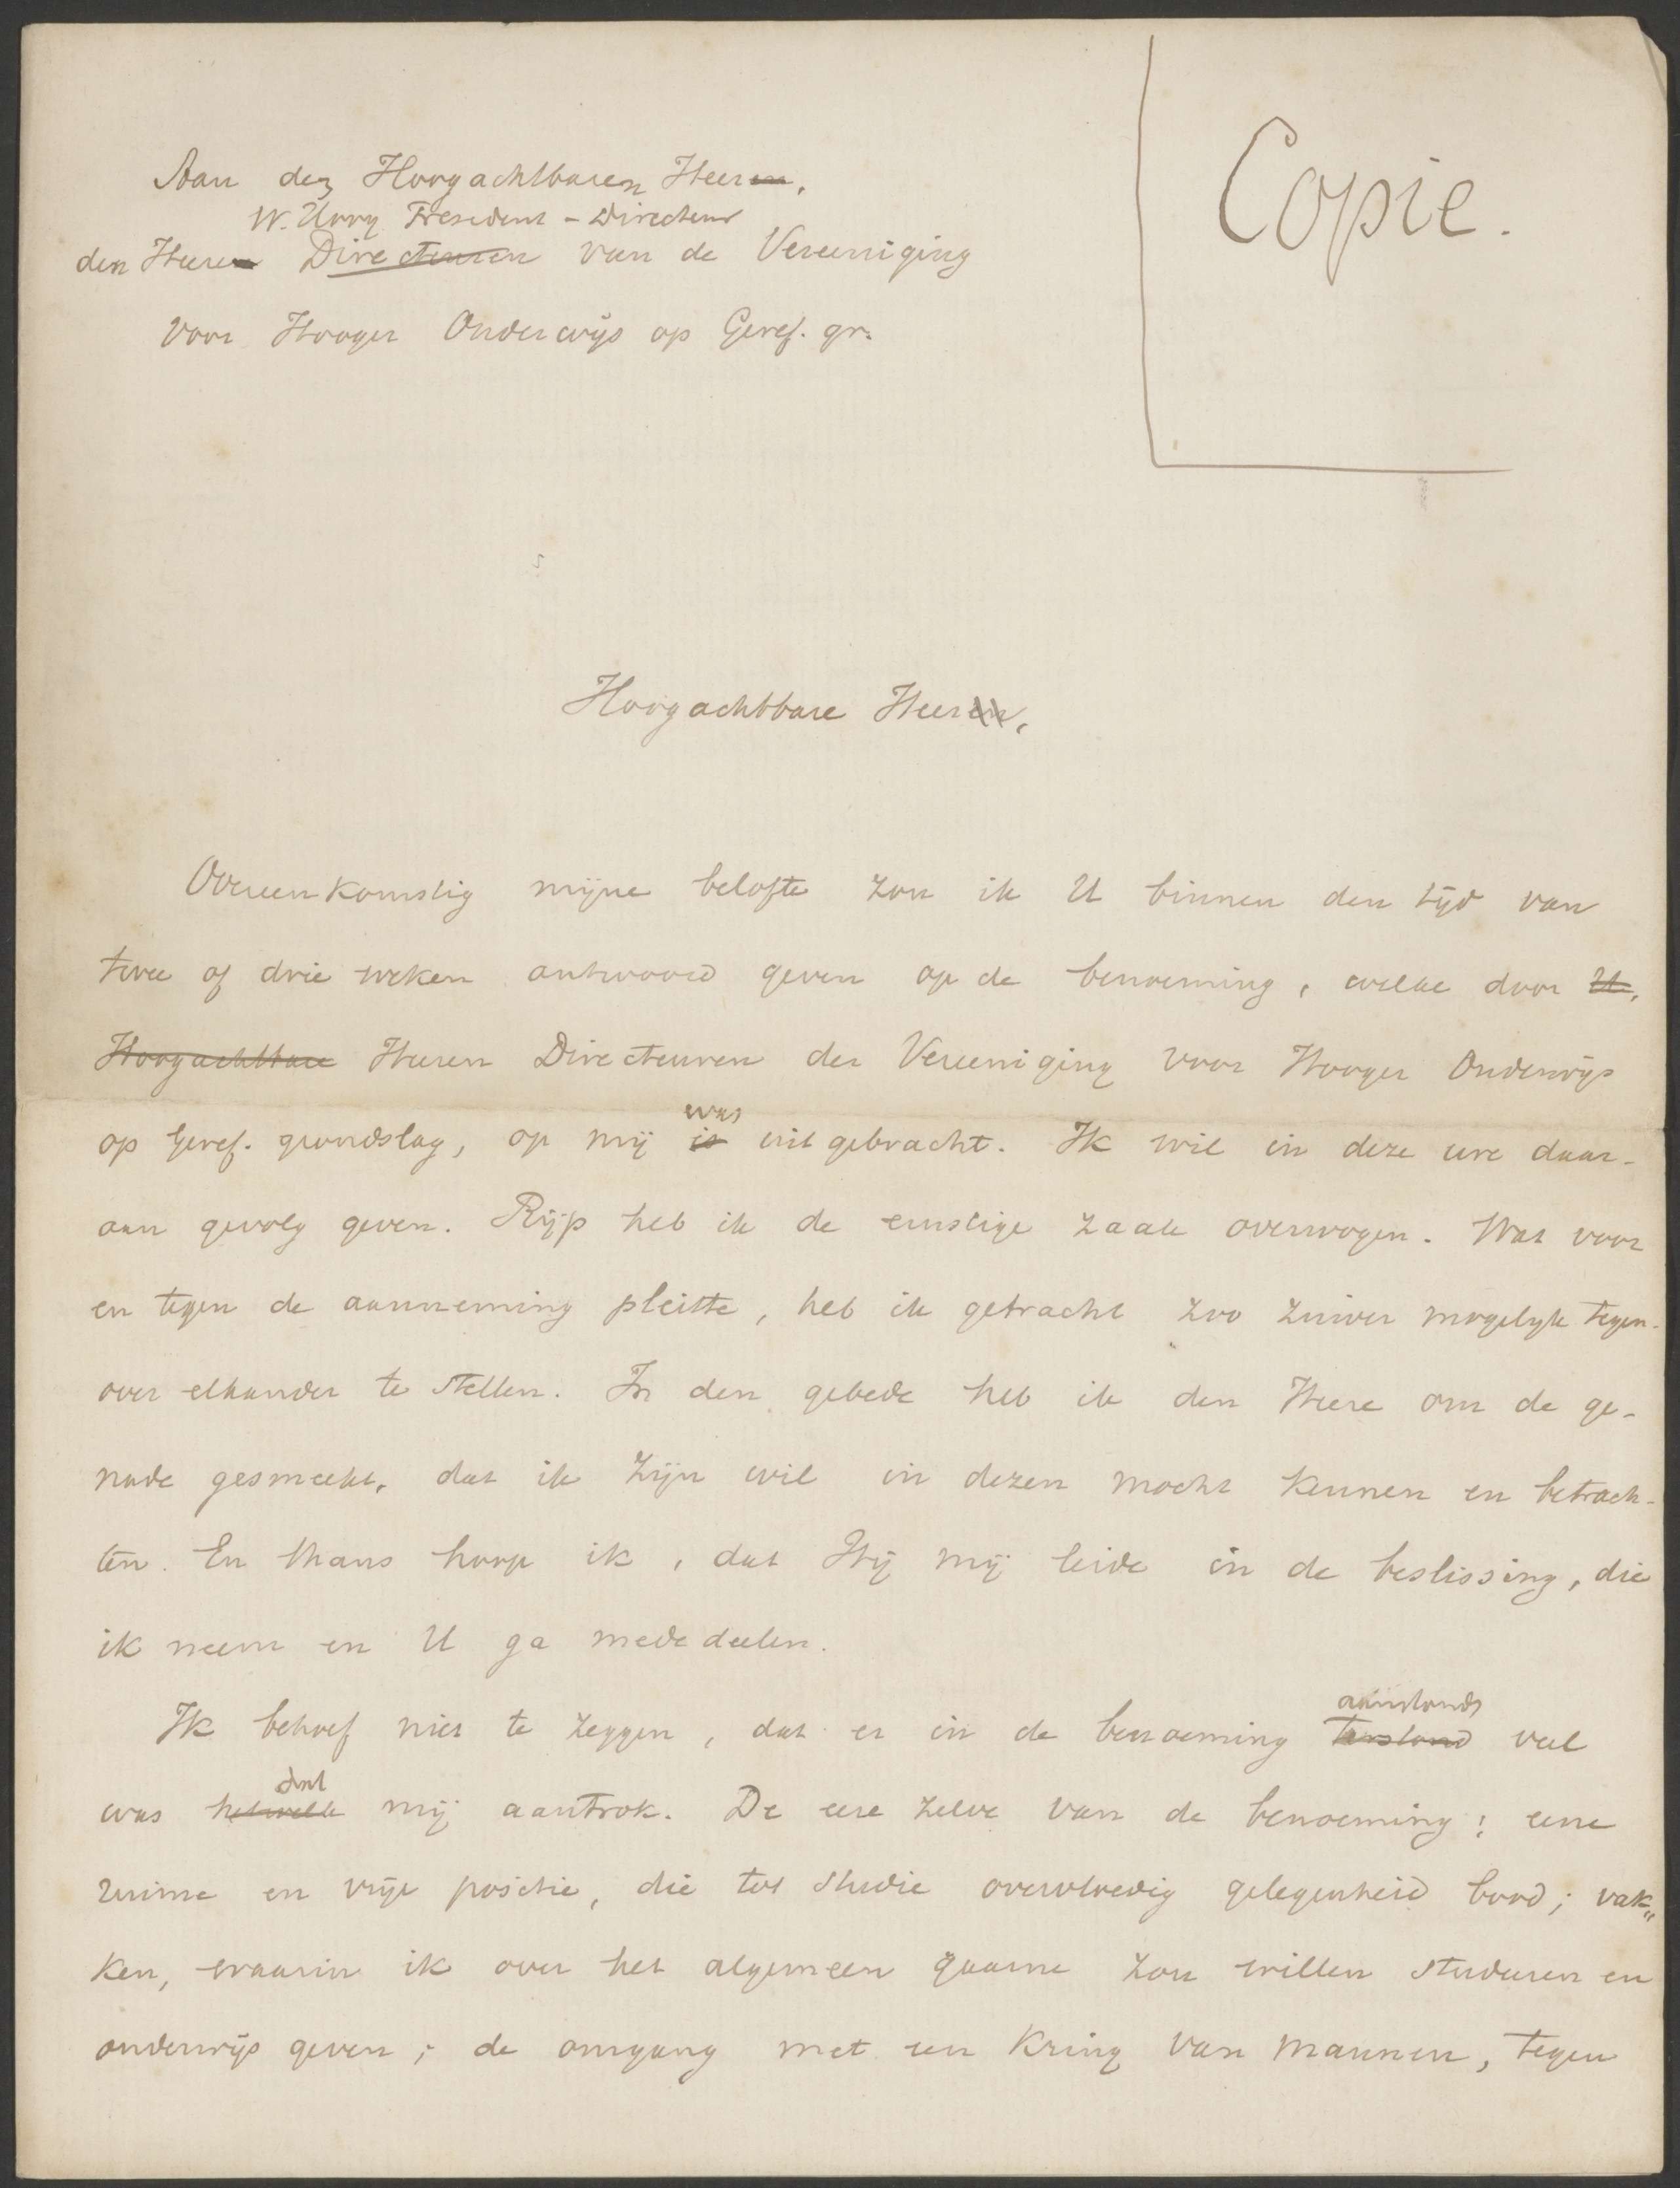 Copie.
Aan den Hoogachtbaren Heeren,
W. Hovy President - Directeur
den Heeren Directeuren van de Vereeniging
voor Hooger Onderwijs op Geref. gr.
Hoogachtbare Heeren,
Overeenkomstig mijne belofte zou ik U binnen den tijd van
twee of drie weken antwoord geven op de benoeming, welke door U,
Hoogachtbare Heeren Directeuren der Vereeniging voor Hooger Onderwijs
was
op Geref. grondslag, op mij is uitgebracht. Ik wil in deze ure daar-
aan gevolg geven. Rijp heb ik de ernstige zaak overwogen. Wat voor
en tegen de aanneming pleitte, heb ik getracht zoo zuiver mogelijk tegen-
over elkander te stellen. In den gebede heb ik den Heere om de ge-
nade gesmeekt, dat ik Zijn wil in dezen mocht kennen en betrach-
ten. En thans hoop ik, dat Hij mij leide in de beslissing, die
ik neem en U ga mededeelen.
aanstonds
Ik behoef niet te zeggen, dat er in de benoeming terstond veel
dat
was hetwelk mij aantrok. De eere zelve van de benoeming; eene
ruime en vrije positie, die tot studie overvloedig gelegenheid bood; vak-
ken, waarin ik over het algemeen gaarne zou willen studeeren en
onderwijs geven; de omgang met een kring van mannen, tegen